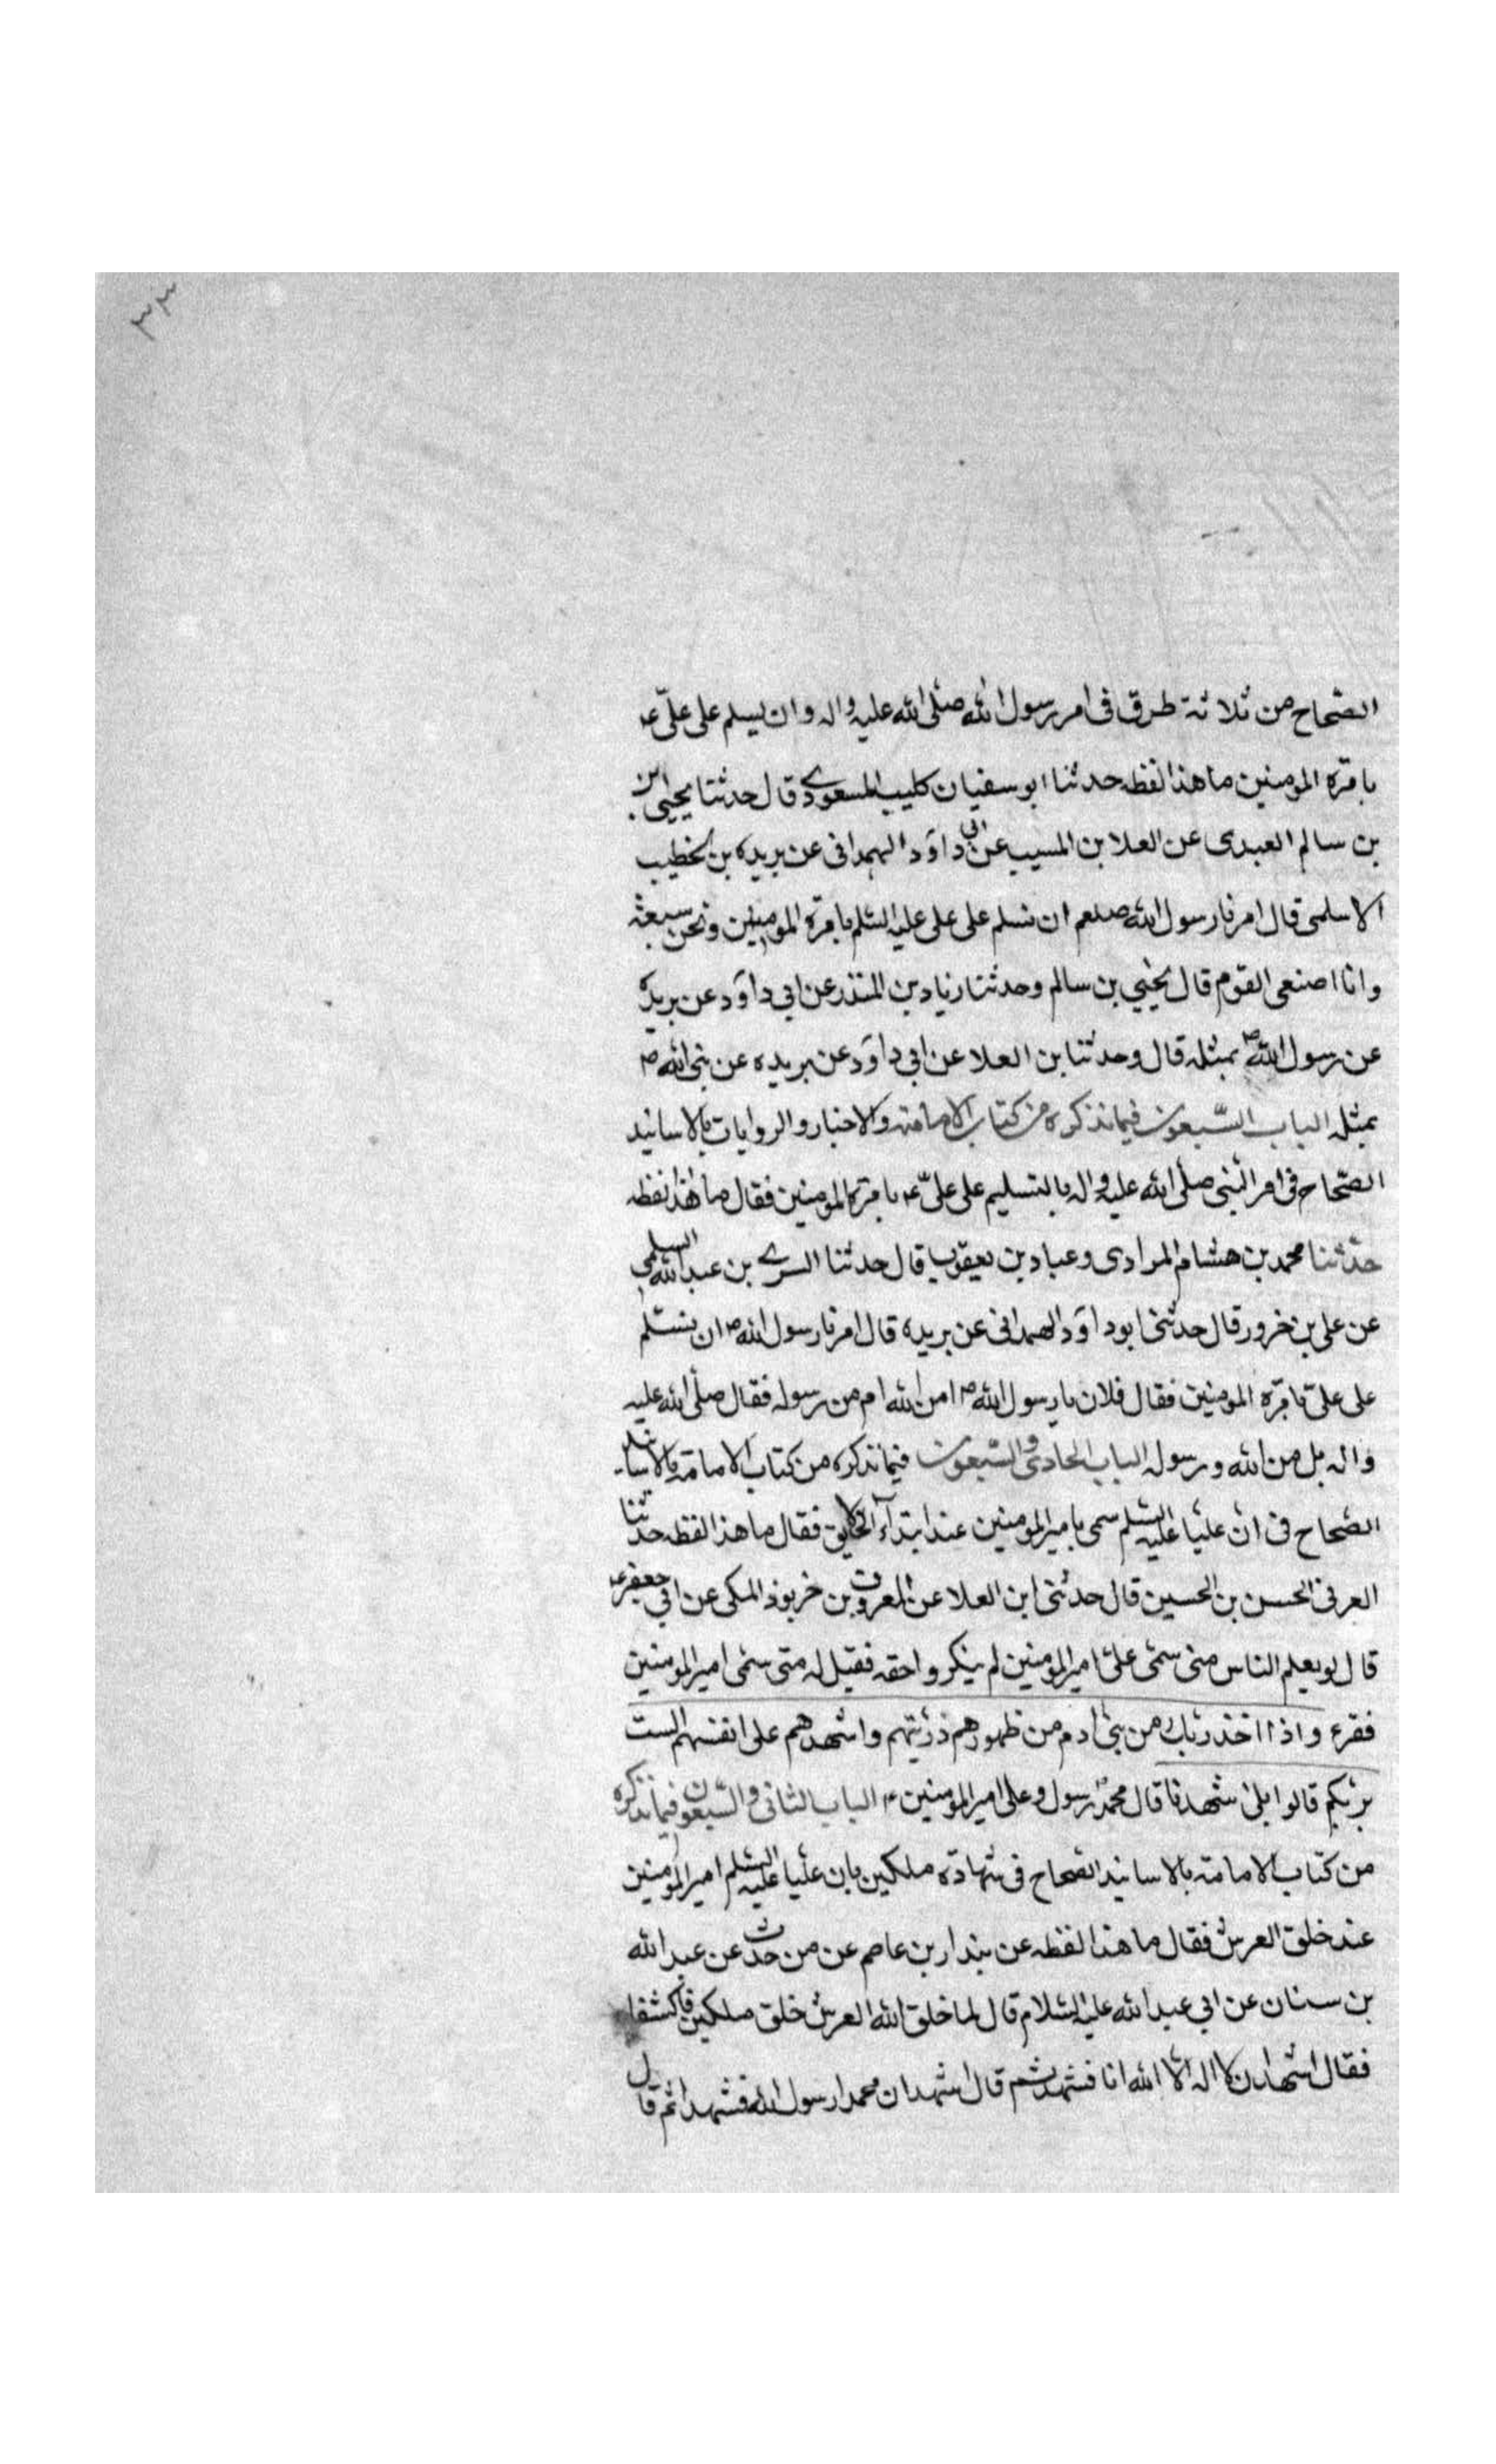 ٣٣
الصّحاح من ثلاثة طرق فى امر رسول الله صلى الله عليه واله وان يسلم على علىّ ع
بامرة المومنين ما هذا لفظه حدثنا ابو سفيان كليب المسعودے قال حدثنا يحيى ابن
بن سالم العبدى عن العلا بن المسيب عن ابى داوَد الهمدانى عن بريده بن الخطيب
الاسلمى قال امرنا رسول الله صلعم ان نسلم على على عليه السّلم بامرة المومنين ونحن سبعة
وانا اصغى القوم قال يحيى بن سالم وحدثنا زياد بن المنذر عن ابى داوَد عن بريده
عن رسول الله ص بمثله قال وحدثنا بن العلا عن ابى داوَد عن بريده عن نبى الله ص
بمثله الباب السّبعون فيما نذكره من كتاب الامامة والاخبار والروايات بالاسانيد
الصّحاح فى امر النبى صلى الله عليه واله بالتسليم على علىّ ع بامرة المومنين فقال ما هذا لفظه
حدّثنا محمد بن هشام المرادى وعباد بن يعقوب قال حدثنا السرے بن عبد الله السلمى
عن على بن خرور قال حدثنى ابو داوَد الهمدانى عن بريده قال امرنا رسول الله ص ان نسلّم
على علىّ بامرة المومنين فقال فلان يا رسول الله ص امن الله ام من رسوله فقال صلى الله عليه
واله بل من الله ورسوله الباب الحادى والسّبعون فيما نذكره من كتاب الامامة بالاسانيد
الصّحاح فى انّ عليّا عليه السّلم سمى بامير المومنين عند ابتدآء الخلايق فقال ما هذا لفظه حدثنا
العرنى الحسن بن الحسين قال حدثنى ابن العلا عن المعروف بن خربوذ المكى عن ابى جعفر ع
قال لو يعلم الناس متى سمّى علىّ امير المومنين لم ينكروا حقه فقيل له متى سمّى امير المومنين
فقرء واذا اخذ ربّك من بنى ادم من ظهورهم ذرّيتهم واشهدهم على انفسهم الست
بربّكم قالوا بلى شهدنا قال محمد رسول وعلى امير المومنين ع الباب الثانى والسّبعون فيما نذكره
من كتاب الامامة بالاسانيد الصّحاح فى شهادة ملكين بان عليّا عليه السّلم امير المومنين
عند خلق العرش فقال ما هذا لفظه عن بندار بن عاصم عن من حدث عن عبد الله
بن سنان عن ابى عبد الله عليه السّلام قال لما خلق الله العرش خلق ملكين فاكتنفا
فقال اشهدا ان لا اله الّا الله انا فشهدا ثم قال اشهد ان محمدا رسول الله فشهدا ثم قال